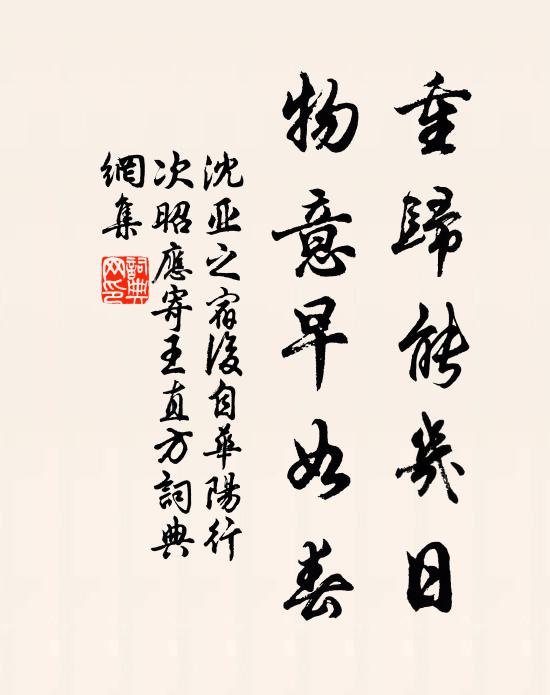 重歸能幾日
物意早如春
沈亞之宿後自華陽行
次昭應寄王直方詞典
網集
詞典網印